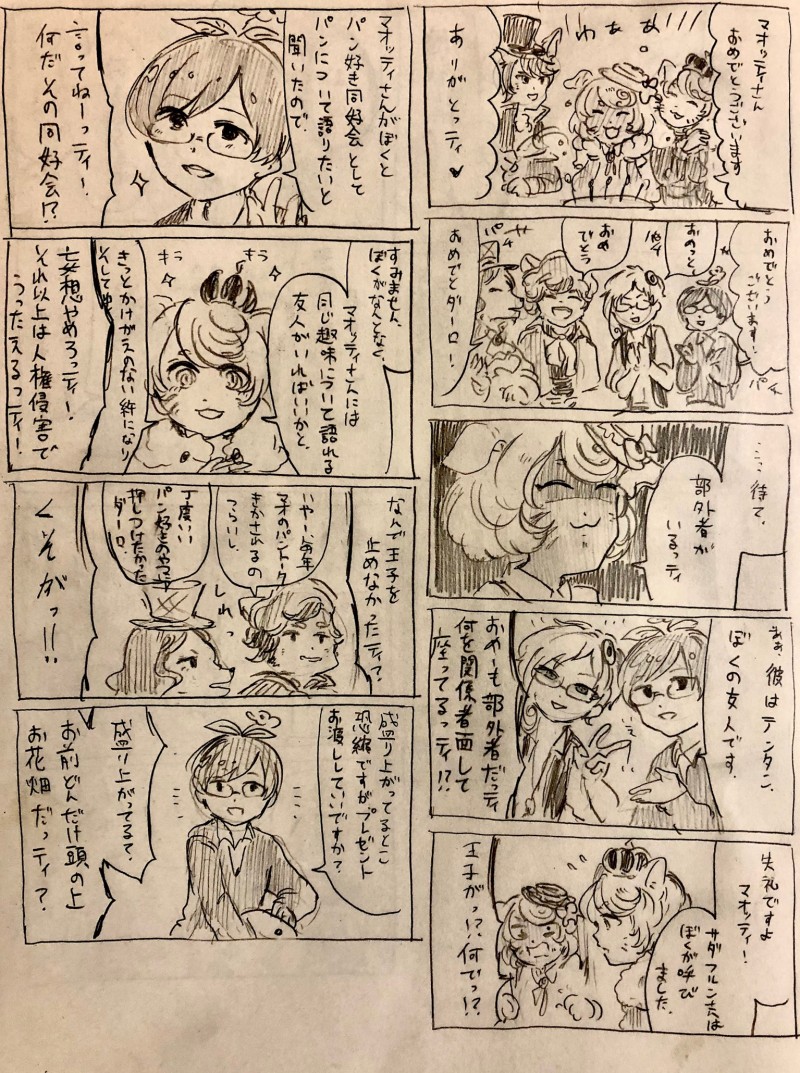 マオッティさん
おめでとうございます
わぁぁ
ありがとっティ♥
おめでとう
ございます!
パチ
おめっと
パチ
おめ
でとう
パチ
おめでとダーロ!
…待て、
部外者が
いるっティ
ああ、彼はテンタン、
ぼくの友人です。
おやーも部外者だっティ
何を関係者面して
座ってるっティ!?
失礼ですよ
マオッティ!
サダフルン夫は
ぼくが呼び
ました。
王子がっ!?何でっ!?
マオッティさんがぼくと
パン好き同好会として
パンについて語りたいと
聞いたので、
言ってねーっティ!
何だその同好会!?
すみません、
ぼくがなんとなく、
マオッティさんには
同じ趣味について語れる
友人がいればいいかと、
キラ
キラ
きっとかけがえのない絆になり
そして
妄想やめろっティ!
それ以上は人権侵害で
うったえるっティ!
なんで王子を
止めなかったティ?
いやー、毎年
マオのパントーク
きかされるの
つらいし、
丁度いい
パン好きのやつに
押しつけたかった
ダーロ、
しれっ
くそがっ!!
盛り上がってるとこ
恐縮ですがプレゼント
お渡ししていいですか?
盛り上がってるて、
お前どんだけ頭の上
お花畑だっティ?